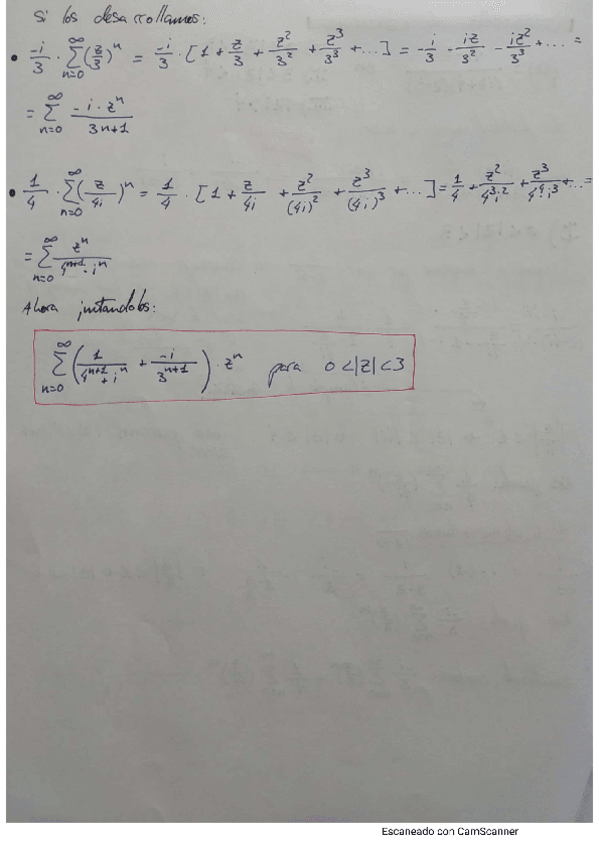 Si los desarrollamos:
• -i/3 · ∑_{n=0}^{∞} (z/3)^n = -i/3 · [1 + z/3 + z²/3² + z³/3³ + ...] = -i/3 - iz/3² - iz²/3³ + ... =
= ∑_{n=0}^{∞} -i·z^n / 3^{n+1}
• 1/4 · ∑_{n=0}^{∞} (z/4i)^n = 1/4 · [1 + z/4i + z²/(4i)² + z³/(4i)³ + ...] = 1/4 + z²/4³i² + z³/4⁴i³ + ... =
= ∑_{n=0}^{∞} z^n / 4^{n+1}·i^n
Ahora juntandolos:
∑_{n=0}^{∞} (1/4^{n+1}+i^n + -i/3^{n+1}) · z^n para 0<|z|<3
Escaneado con CamScanner